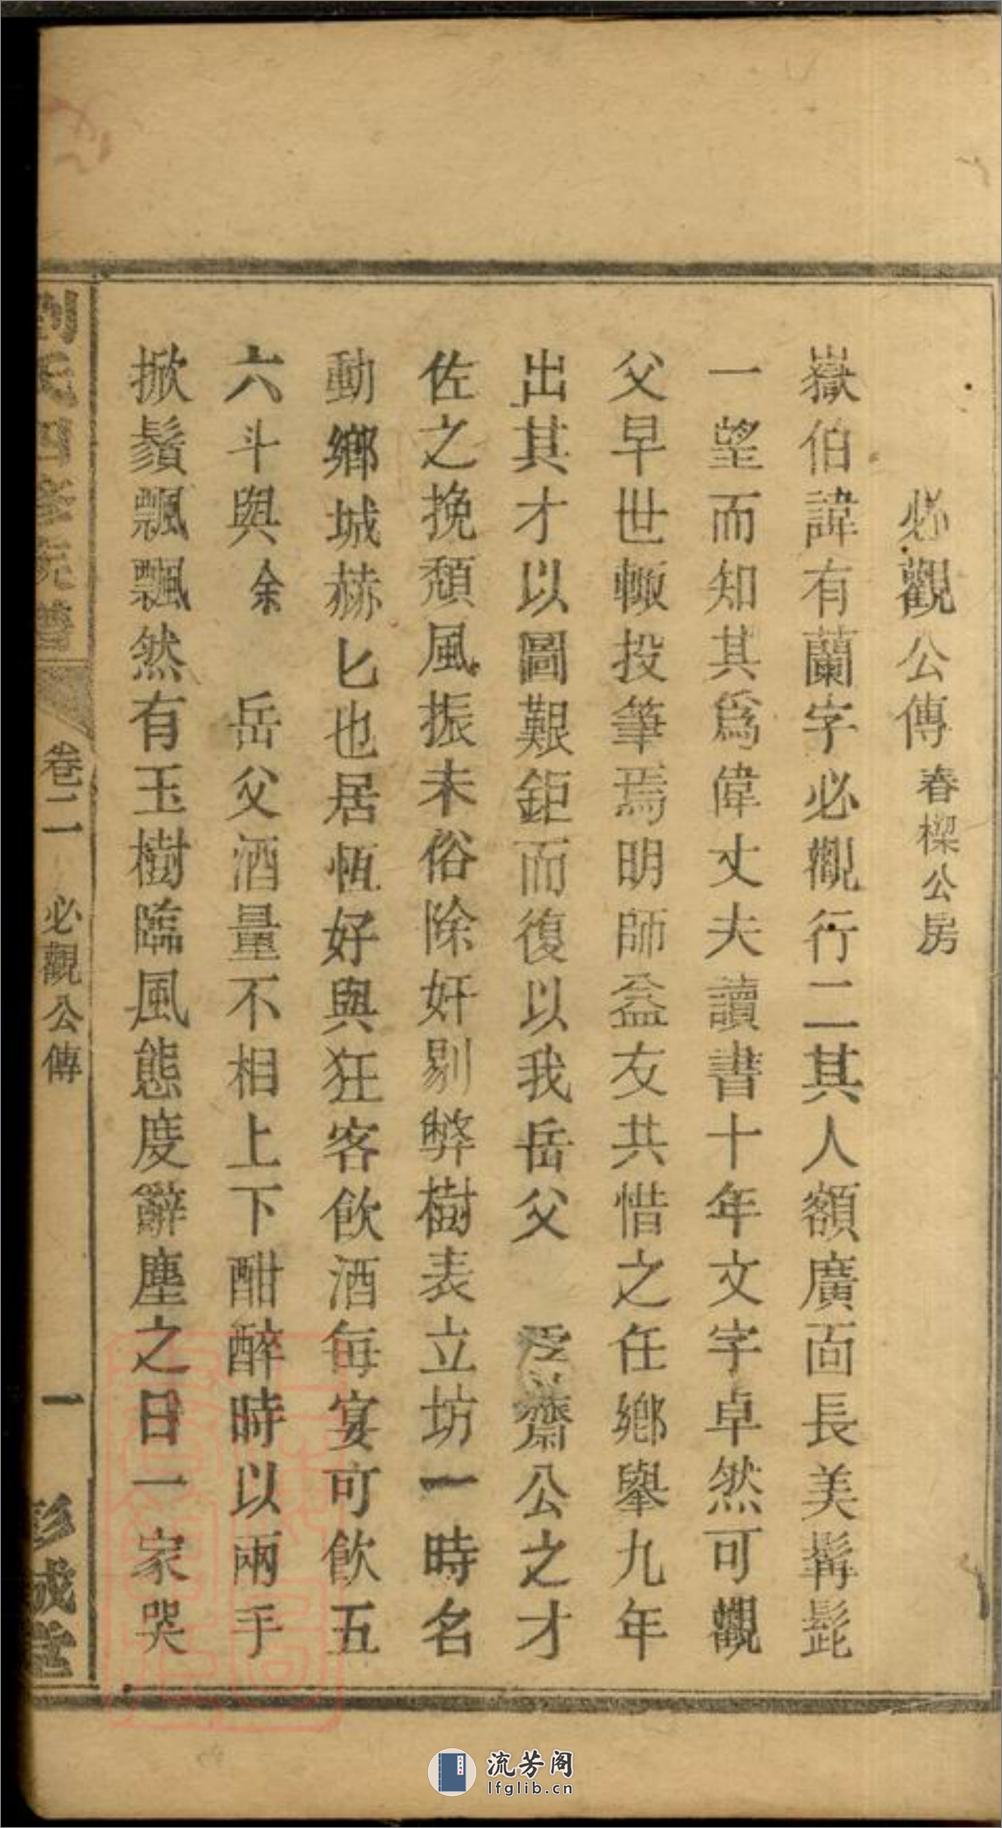 必觀公傳 春樑公房
嶽伯諱有蘭字必觀行二其人額廣面長美髯髭
一望而知其爲偉丈夫讀書十年文字卓然可觀
父早世輙投筆焉明師益友共惜之任鄉舉九年
出其才以圖艱鉅而復以我岳父 齋公之才
佐之挽頹風振末俗除奸剔弊樹表立坊一時名
動鄉城赫匕也居恆好與狂客飲酒每宴可飲五
六斗與余 岳父酒量不相上下酣醉時以兩手
掀鬚飄飄然有玉樹臨風態度辭塵之日一家哭
劉氏四修宗譜 卷二 必觀公傳 一 彭城堂
流芳阁
lfglib.cn